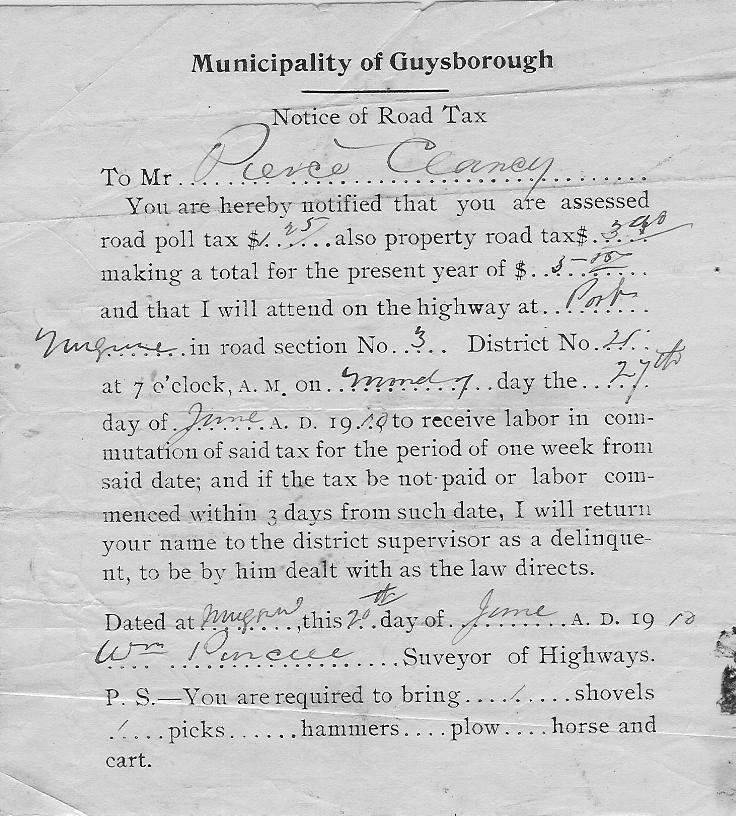 Municipality of Guysborough
Notice of Road Tax
To Mr. Pierce Clancy
You are hereby notified that you are assessed
road poll tax $1.25 also property road tax $.
making a total for the present year of $.
and that I will attend on the highway at Port
Mulgrave in road section No. 3. District No.
at 7 o'clock, A. M. on Monday day the 27th
day of June A. D. 1910 to receive labor in com-
mutation of said tax for the period of one week from
said date; and if the tax be not paid or labor com-
menced within 3 days from such date, I will return
your name to the district supervisor as a delinque-
nt, to be by him dealt with as the law directs.
Dated at, this 20th day of June A. D. 1910
Wm Suveyor of Highways.
P. S.—You are required to bring 1 shovels
1 picks hammers plow horse and
cart.